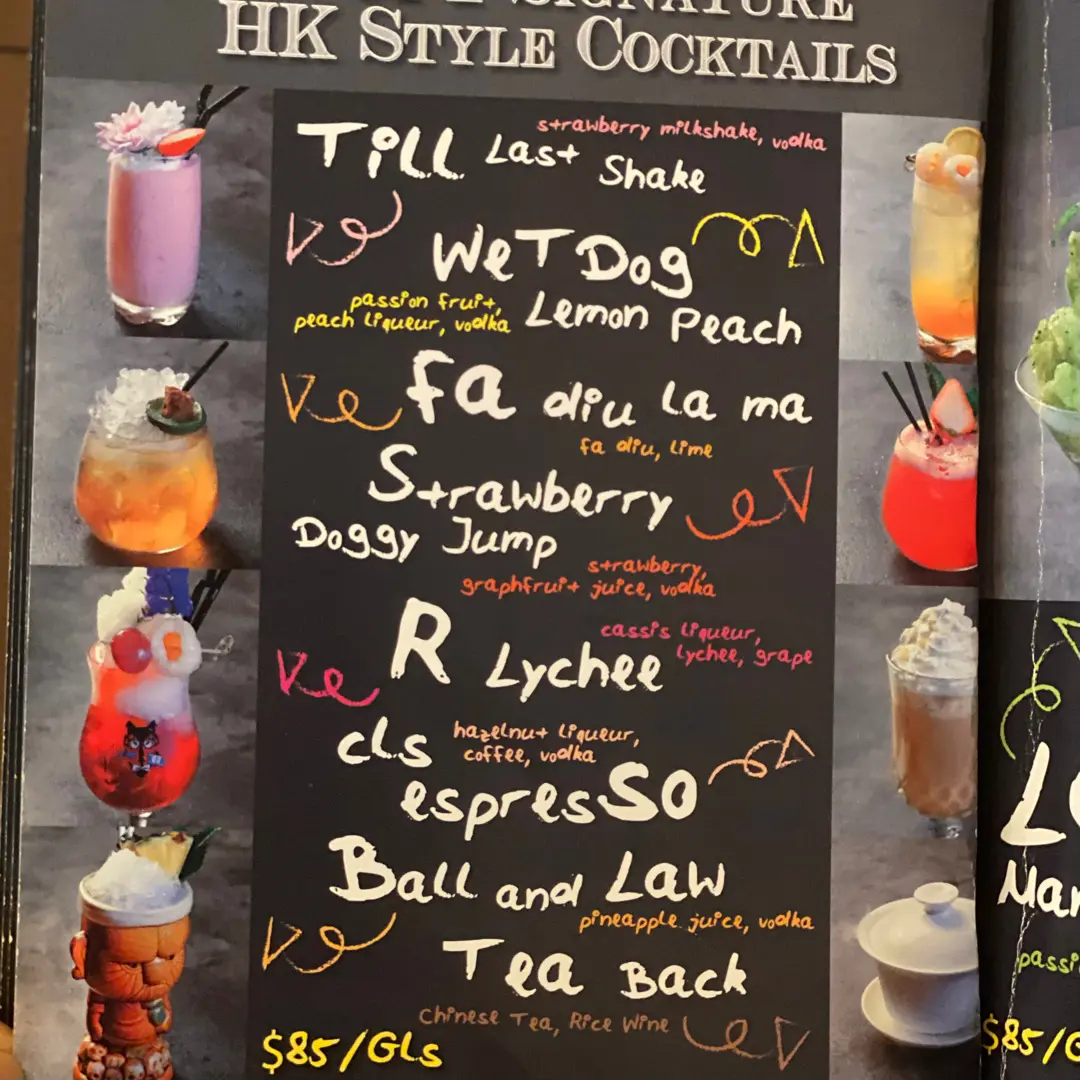 SIGNATURE
HK STYLE COCKTAILS
strawberry milkshake, vodka
Till Last Shake
Wet Dog
passion fruit,
peach liqueur, vodka
Lemon Peach
fa diu la ma
fa diu, lime
Strawberry
Doggy Jump
strawberry,
graphfruit juice, vodka
cassis liqueur,
lychee, grape
R Lychee
cls
hazelnut liqueur,
coffee, vodka
espresso
Ball and Law
pineapple juice, vodka
Tea Back
Chinese Tea, Rice Wine
$85/GLs
$85/G